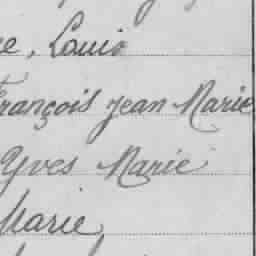 e, Louis
François Jean Marie
Yves Marie
Marie